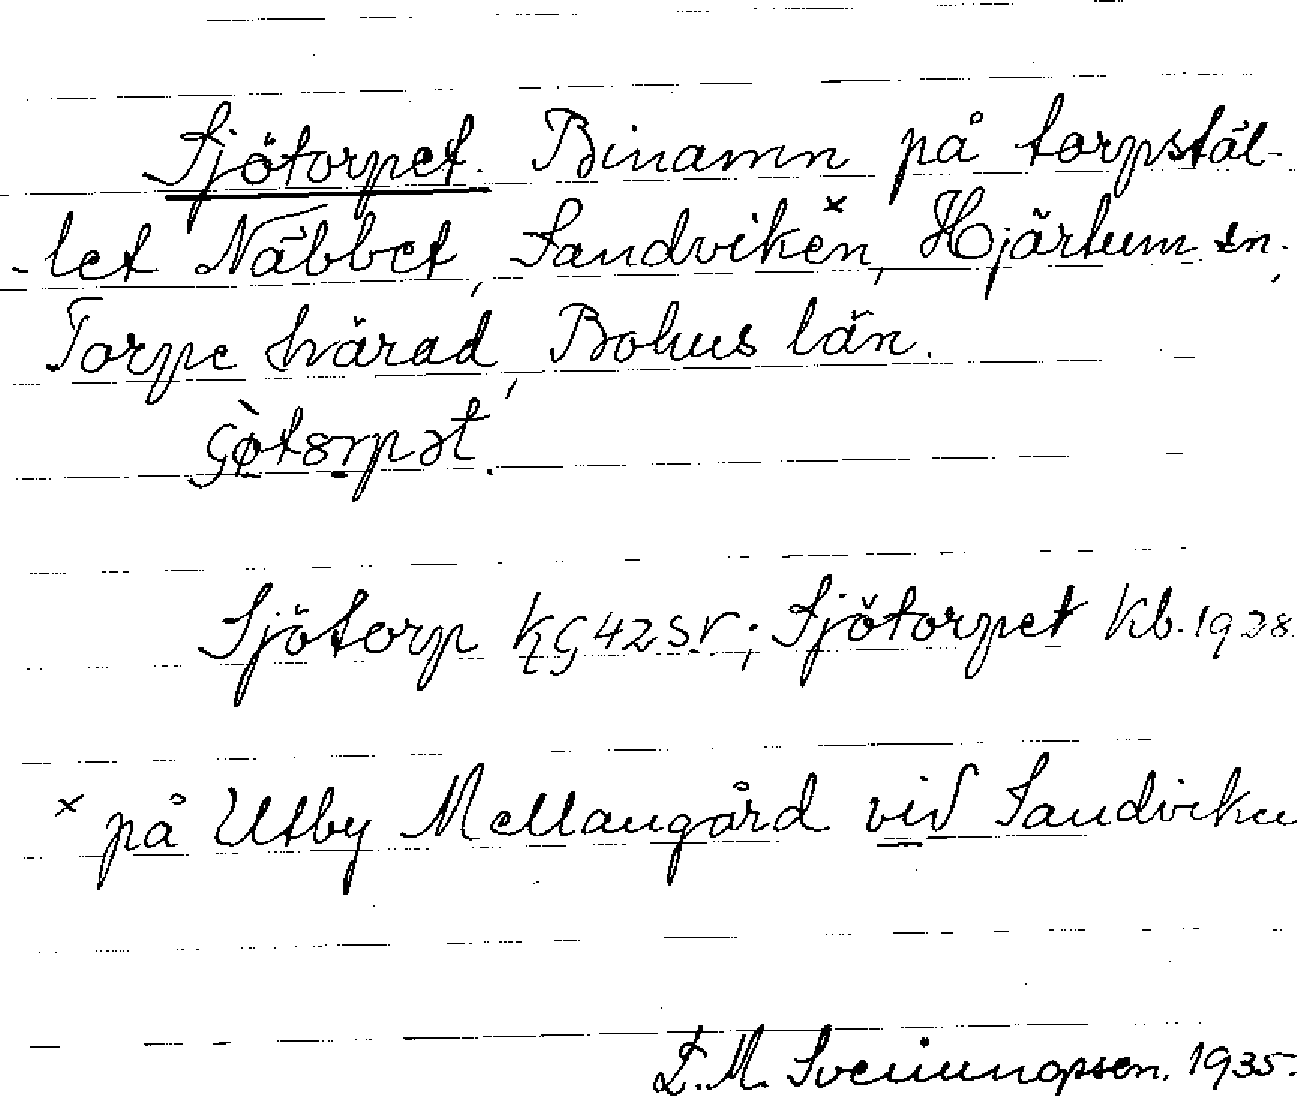 Sjötorpet. Binamn på torpstäl-
-let Näbbet, Sandviken ×, Hjärtum sn.,
Torpe härad, Bohus län.
Sjötorp KG42SV; Sjötorpet Kb. 1928.
× på Utby Mellangård vid Sandviken
1935.